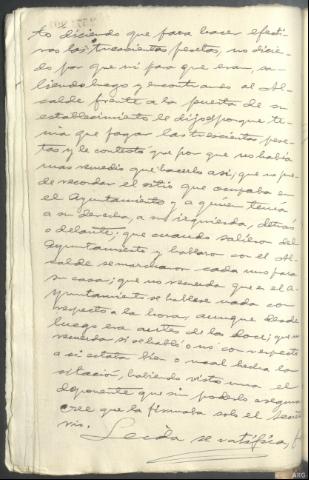 to diciendo que para hacer efecti-
vas las trescientas pesetas, no dicien-
do por que ni para que eran, sa-
liendo luego y encontrando al Al-
calde frente a la puerta de su
establecimiento le dijo porque te-
nia que pagar las trescientas pese-
tas y le contestó que por que no habia
mas remedio que hacerlo asi; que no pue-
de recordar el sitio que ocupaba en
el Ayuntamiento y a quien tenia
a su derecha, a su izquierda, detrás
o delante; que cuando salieron del
Ayuntamiento y hablaron con el Al-
calde se marcharon cada uno para
su casa; que no recuerda que en el A-
yuntamiento se hablase nada con
respecto a la hora, aunque desde
luego era antes de las doce; que no
recuerda si se habló o no con respecto
a si estaba bien o mal hecha la
citación, habiendo visto una el
deponente que sin poderlo asegurar
cree que la firmaba solo el Secreta-
rio.
Leida se ratifica,
ARG